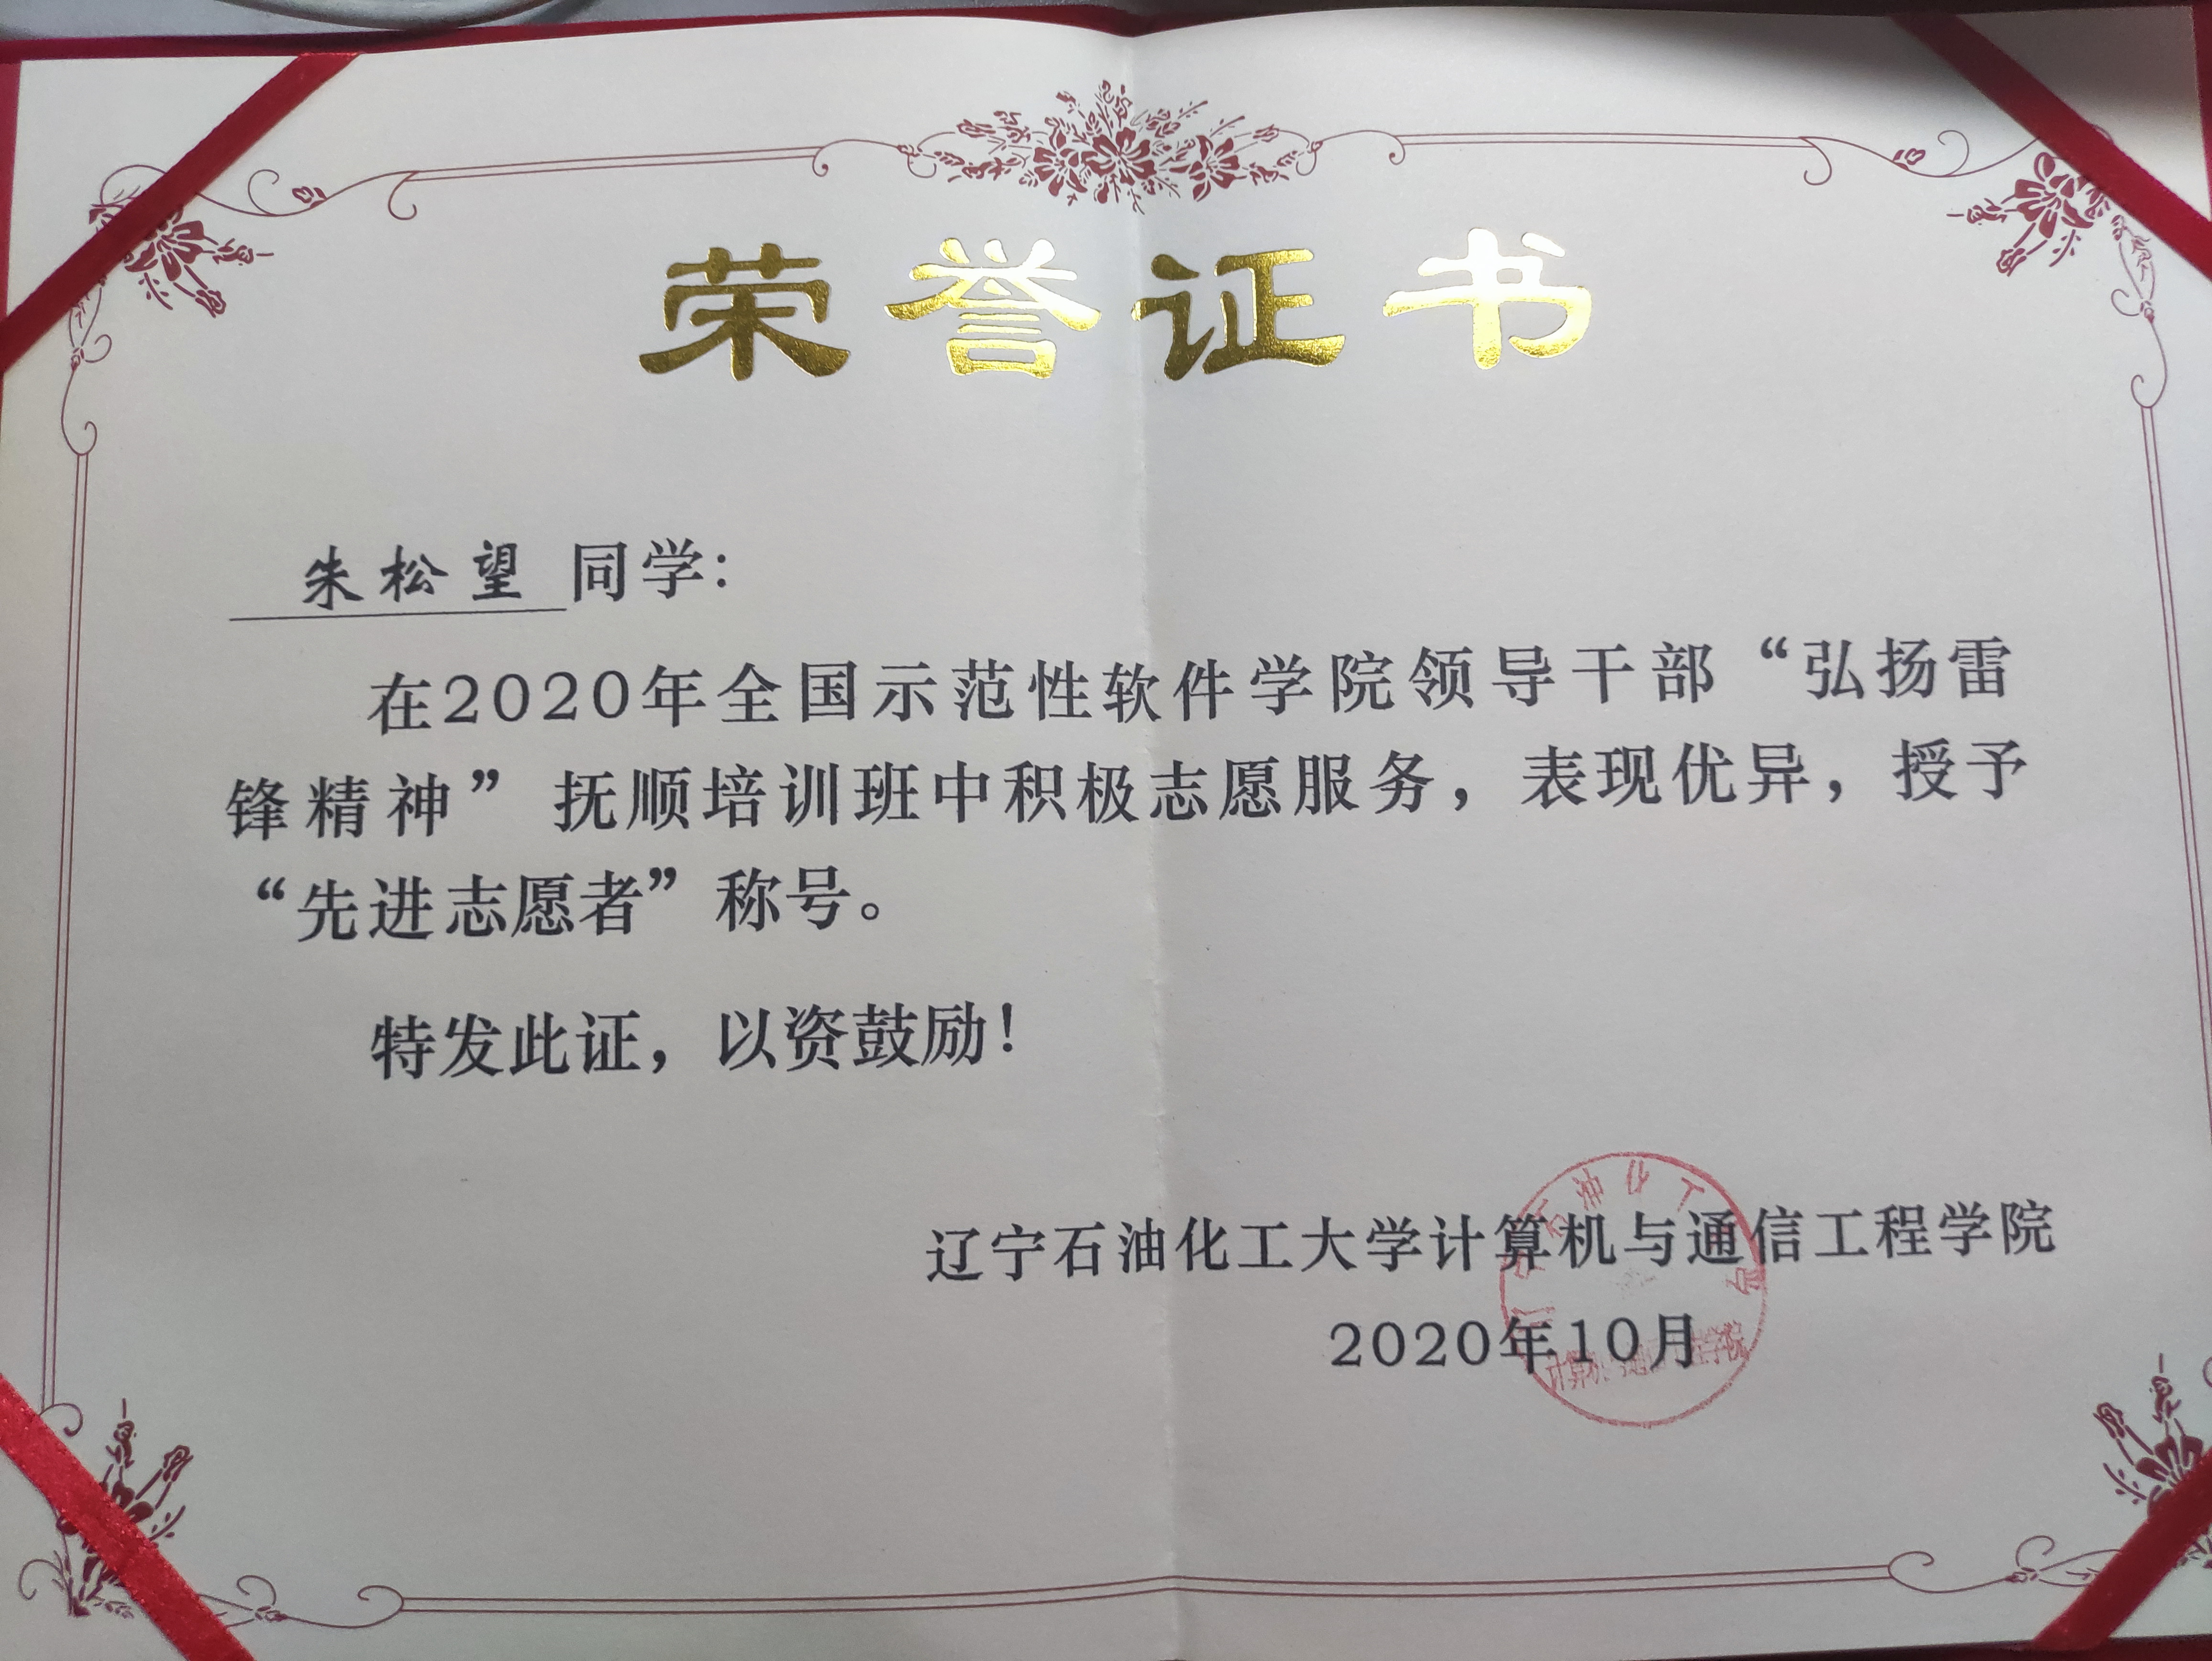 荣誉证书
朱松望 同学：
在2020年全国示范性软件学院领导干部“弘扬雷
锋精神”抚顺培训班中积极志愿服务，表现优异，授予
“先进志愿者”称号。
特发此证，以资鼓励！
石油化工
辽宁石油化工大学计算机与通信工程学院
2020年10月